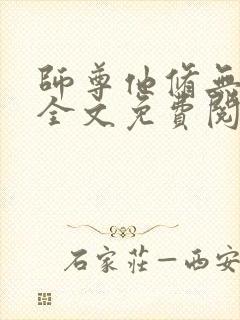 師尊他脩無
全文免費閱
石家莊—西安